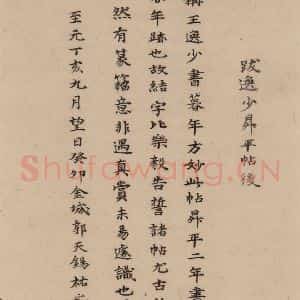 跋逸少昇平帖後
稱王逸少書暮年方妙此帖昇平二年書
年跡也故結字比樂毅告誓諸帖尤古
然有篆籀意非遇真賞未易遽識也
至元丁亥九月望日癸卯金城郭天錫祐
Shufawang.CN